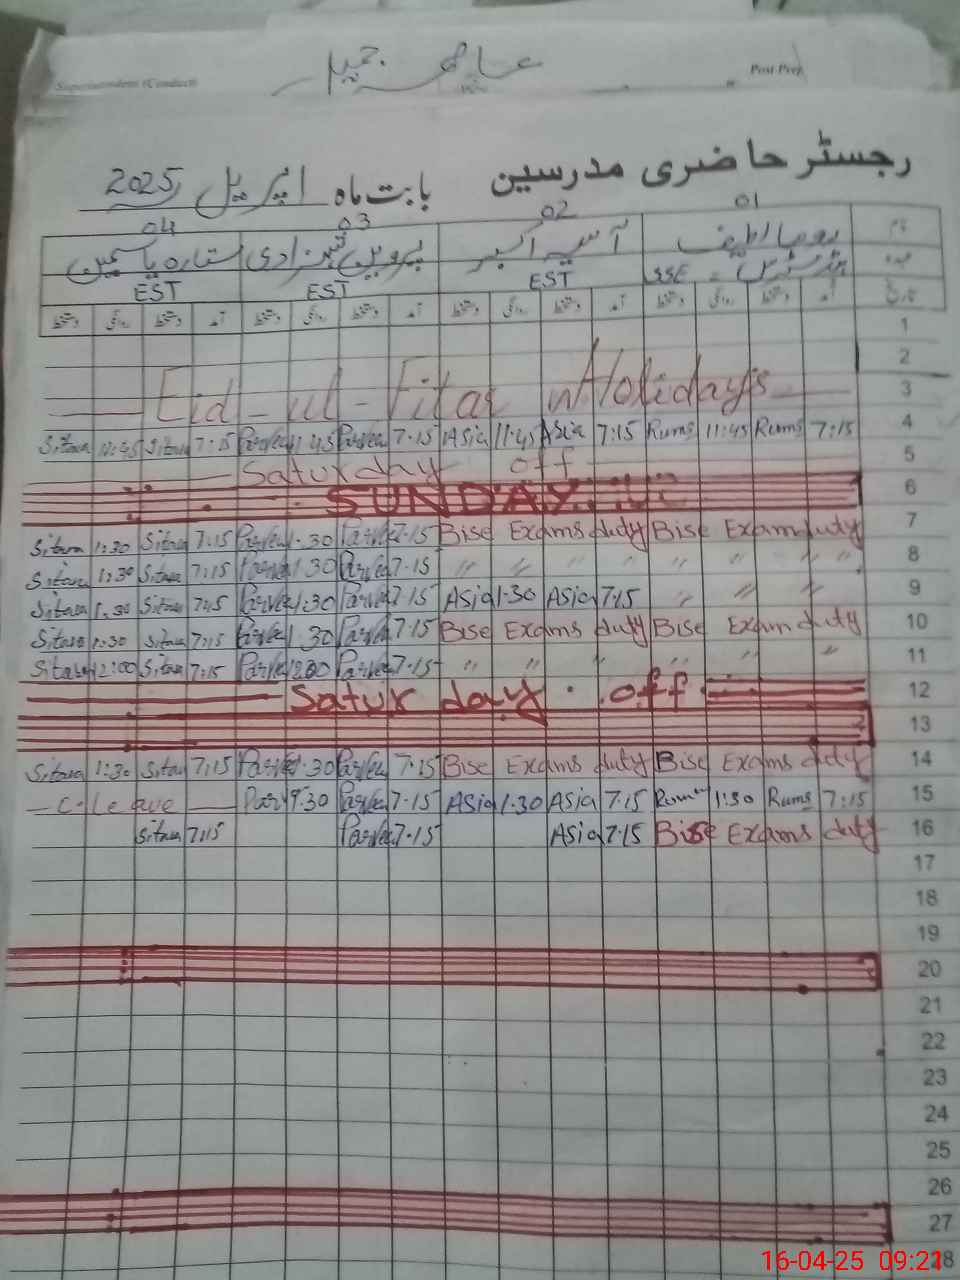 Superintendent (Conduct)
رجسٹر حاضری مدرسین بابت ماہ اپریل 2025
04 03 02 01
ستارہ یاسمین پروین شہزادی آسیہ اکبر نام
EST EST EST SSE
1
2
Eid-ul-Fitar Holidays 3
Sitara 11:45 Sitara 7:15 Parveen 11:45 Parveen 7:15 Asia 11:45 Asia 7:15 Rums 11:45 Rums 7:15 4
Saturday off 5
SUNDAY 6
Sitara 1:30 Sitara 7:15 Parveen 1:30 Parveen 7:15 Bise Exams duty Bise Exam duty 7
Sitara 1:30 Sitara 7:15 Parveen 1:30 Parveen 7:15 " " " " " " " 8
Sitara 1:30 Sitara 7:15 Parveen 1:30 Parveen 7:15 Asia 1:30 Asia 7:15 " " " 9
Sitara 1:30 Sitara 7:15 Parveen 1:30 Parveen 7:15 Bise Exams duty Bise Exam duty 10
Sitara 12:00 Sitara 7:15 Parveen 12:00 Parveen 7:15 " " " " " " 11
Saturday off 12
13
Sitara 1:30 Sitara 7:15 Parveen 1:30 Parveen 7:15 Bise Exams duty Bise Exams duty 14
C.leave Parveen 1:30 Parveen 7:15 Asia 1:30 Asia 7:15 Rums 1:30 Rums 7:15 15
Sitara 7:15 Parveen 7:15 Asia 7:15 Bise Exams duty 16
17
18
19
20
21
22
23
24
25
26
27
28
16-04-25 09:21